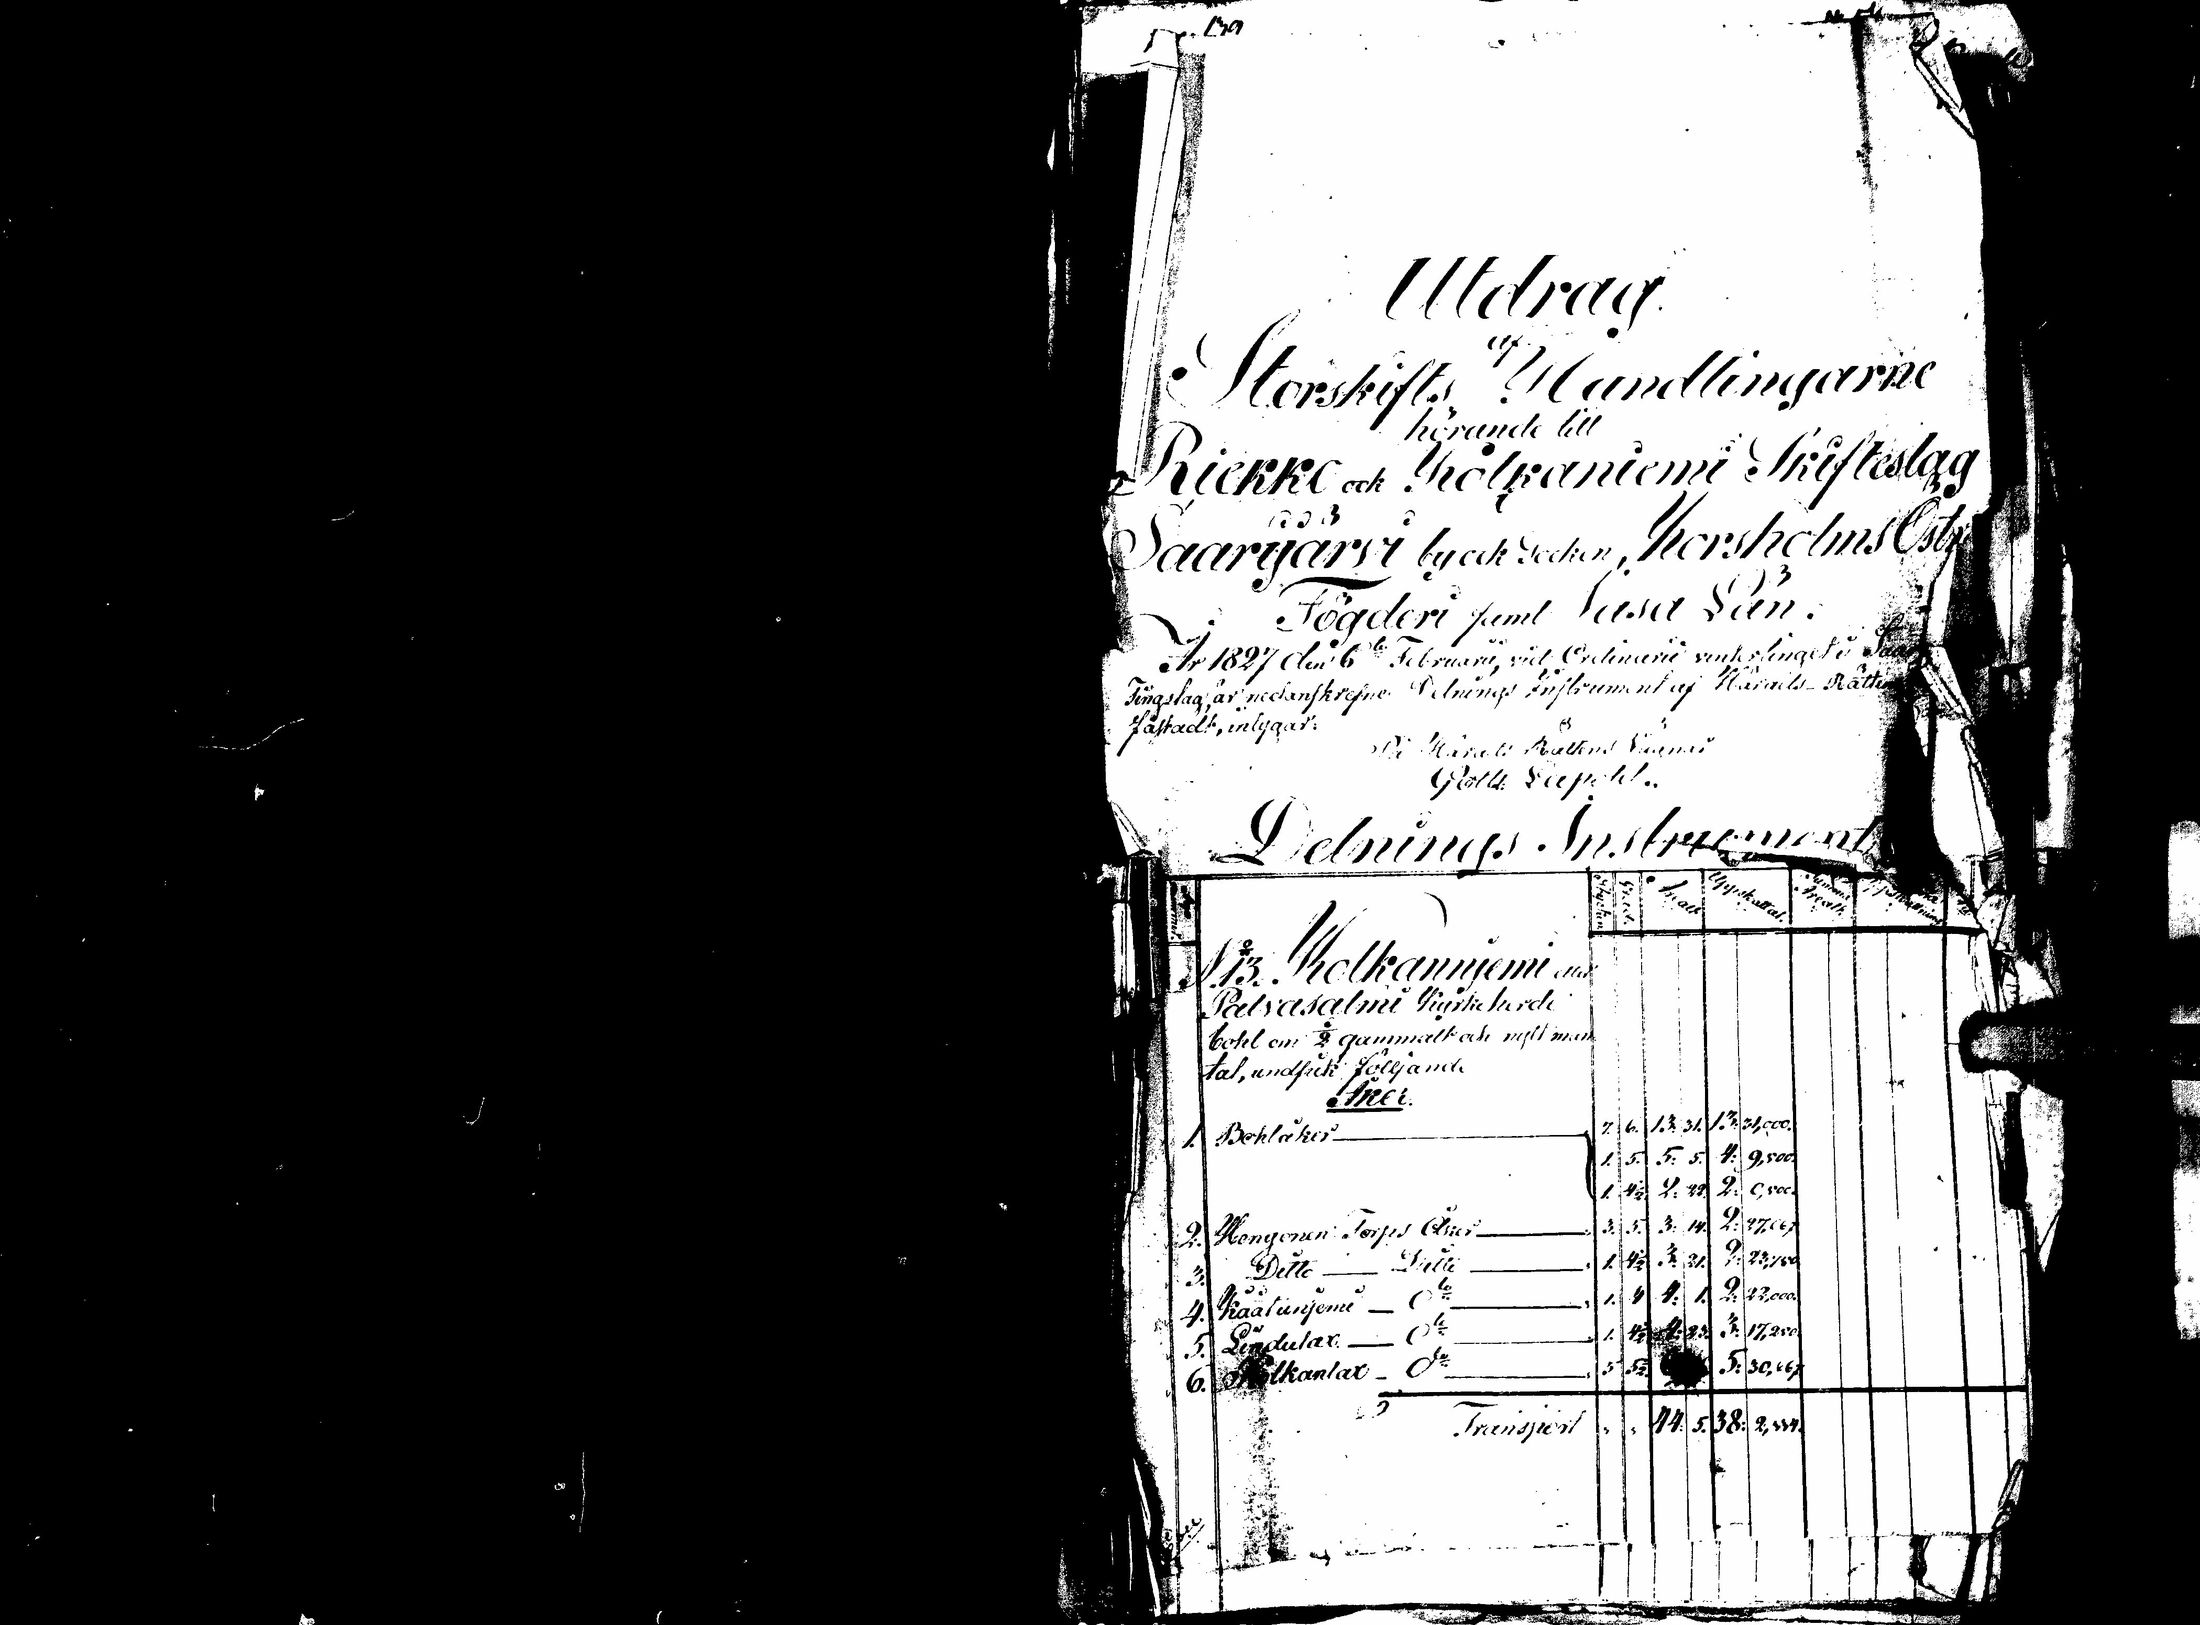 139
Utdrag
af
Storskifts Handlingarne
hörande till
Riekko och Kolkaniemi Skifteslag
Saarijärvi by och Socken, Korsholms Östr
Fögderi samt Vasa Län.
År 1827 den 6te Februarii, vid Ordinarie vintertinget i Saar
Tingslag, är nedanskrefne Delnings Instrument af Härads-Rätten
fästadt, intygar.
På Härads Rättens Vägnar
Delnings Instrument
Stycken Grad. Areal Uppskattat. Summa Areal
N:o 13. Kolkanniemi eller
Palvasalmi Kyrkoherde
bohl om 1/2 gammalt och nytt man
tal, undfick följande
Åker.
1. Bohlåker 7. 6. 13: 31. 13: 31,000.
1. 5. 5: 5. 4: 9,500.
1. 4 1/2 2: 22. 2: 0,500.
2. Hongonen Torps Åker 3. 5. 3: 14. 2: 27,667
3. Ditto Ditto 1. 4 1/2 3: 21. 2: 23,750
4. Käätänjemi Dto 1. 4 4: 1. 2: 22,000.
5. Lindulax Dto 1. 4 1/2 4: 23. 3: 17,250
6. Kolkanlax Dto 5 5 1/2 5: 30,667
Transport 44: 5. 38: 2,334.